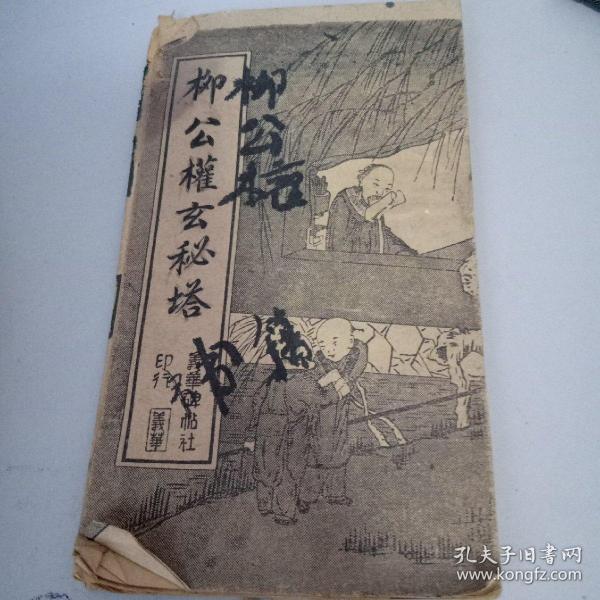 柳公權玄秘塔
義華碑帖社
印行
義華
柳公
孔夫子旧书网
www.kongfz.com